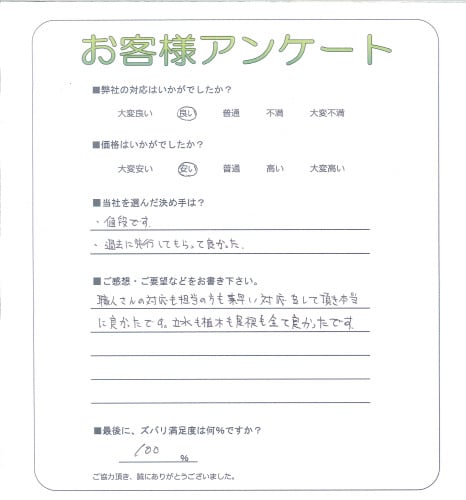 お客様アンケート
■弊社の対応はいかがでしたか？
大変良い 良い 普通 不満 大変不満
■価格はいかがでしたか？
大変安い 安い 普通 高い 大変高い
■当社を選んだ決め手は？
・値段です。
・過去に発行してもらって良かった。
■ご感想・ご要望などをお書き下さい。
職人さんの対応も担当の方も素早い対応をして頂き本当
に良かったです。立水も植木も屋根も全て良かったです。
■最後に、ズバリ満足度は何％ですか？
100 ％
ご協力頂き、誠にありがとうございました。